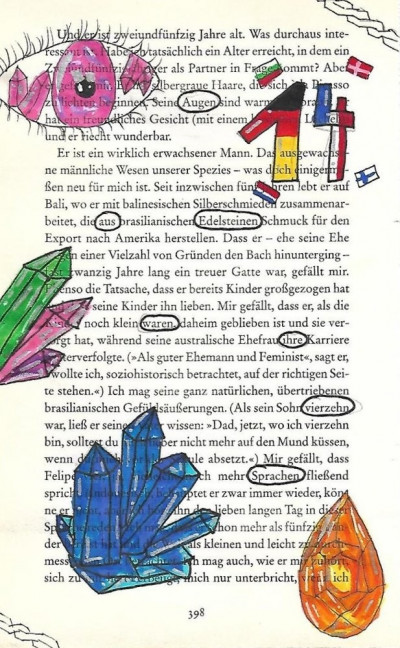 Und er ist zweiundfünfzig Jahre alt. Was durchaus inte-
ressant ist. Habe ich tatsächlich ein Alter erreicht, in dem ein
als Partner in Frage kommt? Aber
silbergraue Haare, die sich
beginnen. Seine Augen sind warm
hat ein freundliches Gesicht (mit einem
und er riecht wunderbar.
Er ist ein wirklich erwachsener Mann. Das ausgewachse-
ne männliche Wesen unserer Spezies – was doch einigerm
ßen neu für mich ist. Seit inzwischen fünf Jahren lebt er auf
Bali, wo er mit balinesischen Silberschmieden zusammenar-
beitet, die aus brasilianischen Edelsteinen Schmuck für den
Export nach Amerika herstellen. Dass er – ehe seine Ehe
einer Vielzahl von Gründen den Bach hinunterging –
fast zwanzig Jahre lang ein treuer Gatte war, gefällt mir.
Ebenso die Tatsache, dass er bereits Kinder großgezogen hat
seine Kinder ihn lieben. Mir gefällt, dass er, als die
noch klein waren, daheim geblieben ist und sie ver-
sorgt hat, während seine australische Ehefrau ihre Karriere
weiterverfolgte. (»Als guter Ehemann und Feminist«, sagt er,
»wollte ich, soziohistorisch betrachtet, auf der richtigen Sei-
te stehen.«) Ich mag seine ganz natürlichen, übertriebenen
brasilianischen Gefühlsäußerungen. (Als sein Sohn vierzehn
war, ließ er seinen wissen: »Dad, jetzt, wo ich vierzehn
bin, solltest du aber nicht mehr auf den Mund küssen,
wenn du absetzt.«) Mir gefällt, dass
Felipe mehr Sprachen fließend
spricht er zwar immer wieder, kön
ne er den lieben langen Tag in dieser
schon mehr als fünfzig
als kleinen und leicht zu
ich mag auch, wie er mir zuhört,
sich zu mich nur unterbricht, wenn ich
14
398